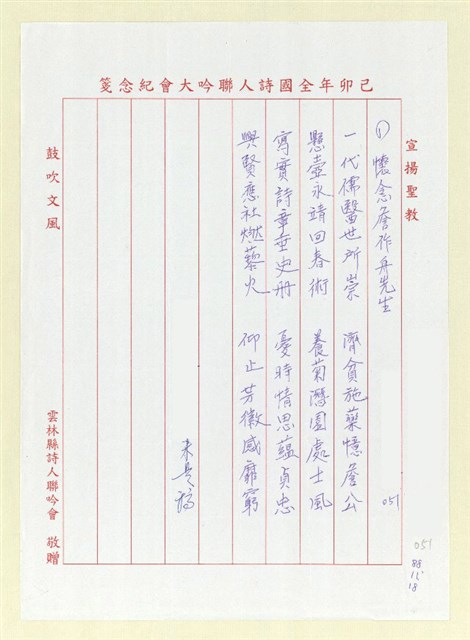 己卯年全國詩人聯吟大會紀念箋
宣揚聖教
① 懷念詹作舟先生
051
一代儒醫世所崇 濟貧施藥憶詹公
懸壺永靖回春術 養菊潛園處士風
寫實詩章垂史册 憂時情思蘊貞忠
興賢應社燃藜火 仰止芳徽感靡窮
鼓吹文風
雲林縣詩人聯吟會 敬贈
051
88
11
18